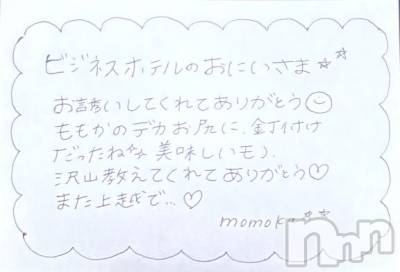 ビジネスホテルのおにいさま☆☆
お誘いしてくれてありがとう☺
ももかのデカお尻に、釘付け
だったね☆ 美味しいモノ、
沢山教えてくれてありがとう♡
また上越で…♡
momoka☆☆
nnn